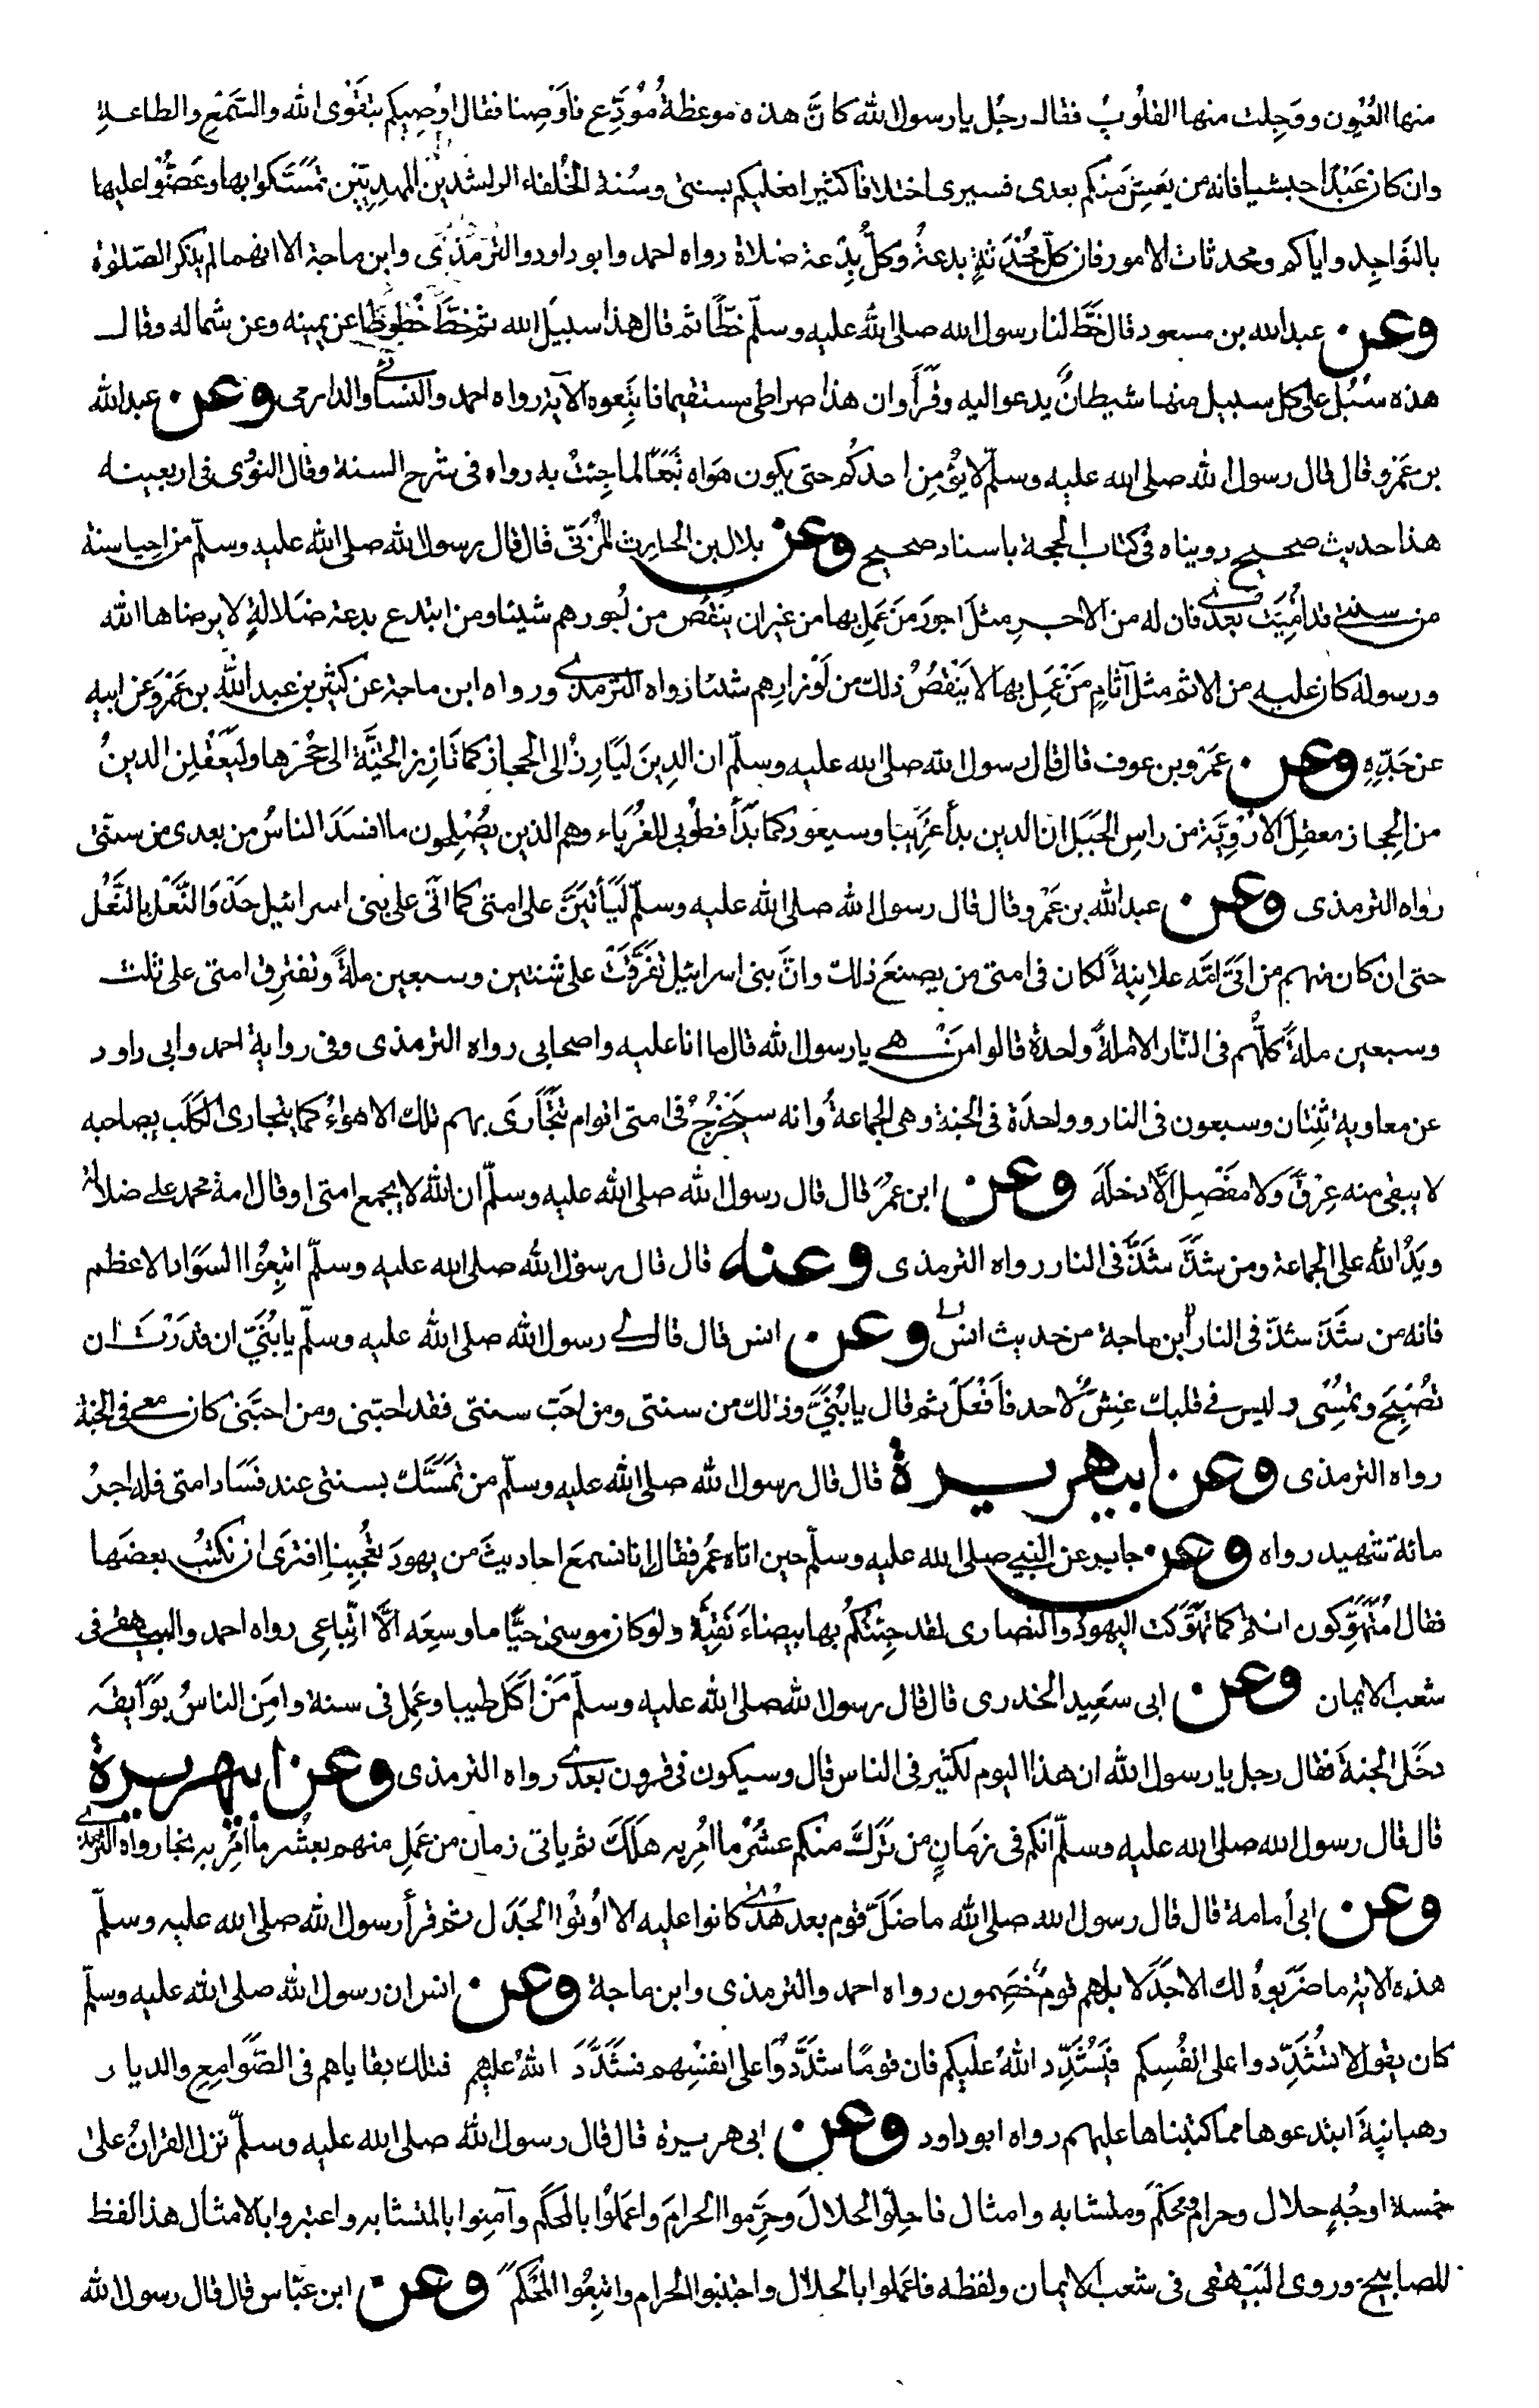 منها العُيُون ووَجِلت منها القلُوبُ فقال رجُل يا رسول الله كانَّ هذه موعظةُ مُوَدِّعٍ فأَوْصِنا فقال اوُصِيكم بتَقوَى الله والسَّمْعِ والطاعةِ
وان كان عَبْدًا حبشيا فانه من يَعِشْ منكم بعدى فسيرى اختلافا كثيرا فعليكم بسنتى وسُنة الخُلفاء الراشدين المهدِيِّين تمَسَّكوا بها وعَضُّوا عليها
بالنَواجِذ واياكم ومحدثات الامور فان كلّ مُحْدَثةٍ بدعةٌ وكلُّ بِدْعة ضلالة رواه احمد وابو داود والترمذى وابن ماجة الا انهما لم يذكر الصّلوٰة
وعن عبد الله بن مسعود قال خَطَّ لنا رسول الله صلى الله عليه وسلّم خطًّا ثم قال هذا سبيل الله ثم خطَّ خُطوطًا عن يمينه وعن شماله وقال
هذه سُبُل على كل سبيل منها شيطانٌ يدعو اليه وقَرَأَ وان هذا صراطى مستقيما فاتبِّعوه الآية رواه احمد والنسائى والدارمى وعن عبد الله
بن عَمْرو قال قال رسول الله صلى الله عليه وسلّم لا يؤمِن احدكُم حتى يكون هَواه تَبَعًا لما جِئتُ به رواه فى شرح السنة وقال النوَوى فى اربعينه
هذا حديث صحيح رويناه فى كتاب الحجة باسناد صحيح وعن بلال بن الحارث المُزَنّى قال قال رسول الله صلى الله عليه وسلّم من احيا سنة
من سنتى قد اُمِيتَت بعدى فان له من الاجرِ مثلَ اجور مَن عَمِل بها من غيران ينقُص من اُجورهم شيئا ومن ابتدع بدعة ضَلالةٍ لا يرضاها الله
ورسوله كان عليه من الاثم مثل آثامِ مَنْ عَمِل بها لا يَنْقصُ ذلك من اَوْزارِهم شيئا رواه الترمذى ورواه ابن ماجة عن كَثيْر بن عبد الله بن عَمْرو عَن ابيه
عن جَدِّهٖ وعن عَمْرو بن عوف قال قال رسول الله صلى الله عليه وسلّم ان الدِينَ لَيَارِزُ الى الحجاز كما تَارِزُ الحَيَّة الى جُحْرها ولَيَعْقِلن الدينُ
من الحِجاز معقِلَ الاُرْوِيَّة من راسِ الجَبَل ان الدين بدأ غَرِيبا وسيعود كما بَدَأَ فطُوبى للغُرَباء وهم الذين يصُْلِحون ما افسَدَ الناسُ من بعدى من سنّتى
رواه الترمذى وعن عبد الله بن عَمْرو قال قال رسول الله صلى الله عليه وسلّم لَيَأتيَنَّ على امتى كما اتَى على بنى اسرائيل حَذْوَ النَّعْل بالنَّعْل
حتى ان كان منهم من اَتَى اُمَّه علانِيةً لكان فى امتى من يصنَع ذلك وانَّ بنى اسرائيل تفرَّقَتْ على ثنتين وسبعين ملةً وتفترِق امتى على ثلث
وسبعين ملةً كلُّهم فى النّار الا ملةً واحدة قالوا مَنْ هى يا رسول الله قال ما انا عليه واصحابى رواه الترمذى وفى رواية احمد وابى داود
عن معاوية ثنِتان وسبعون فى النار وواحدَة فى الجنة وهى الجماعةُ وانه سيَخْرُجُ فى امتى اقوام تَتَجَارَى بهم تلك الاهواءُ كما يتجارى الكَلَب بصاحبه
لا يبقى منه عِرْقٌ وَلا مفَصِْل الَّا دخلَهَ وعن ابن عمرَ قال قال رسول الله صلى الله عليه وسلّم ان الله لا يجمع امتى او قال امة محمد على ضلالة
ويَدُ الله على الجماعة ومن شذَّ شَذَّ فى النار رواه الترمذى وعنه قال قال رسول الله صلى الله عليه وسلّم اتبِعُوا السَوَاد الاعظم
فانه من شَذَّ شذّ فى النار ابن ماجة من حديث انس وعن انس قال قال لى رسول الله صلى الله عليه وسلّم يا بُنَيَّ ان قدَرْتَ ان
تُصْبِحَ وتُمْسِى وليس فى قلبك غِشٌّ لاحد فاَفْعَلْ ثم قال يا بُنَيَّ وذلك من سنتى ومن احَبّ سنتى فقد احبّنى ومن احبَّنى كان معى فى الجنة
رواه الترمذى وعن ابى هريرة قال قال رسول الله صلى الله عليه وسلّم من تَمسَّك بسنتى عند فسَاد امتى فله اجرُ
مائة شهيد رواه وعن جابر عن النبى صلى الله عليه وسلّم حين اتاه عُمرُ فقال انا نسمَع احاديثَ من يهودَ تُعجِبنا افترَى ان نكتُبَ بعضَها
فقال اَمُتَهَوِّكون انتم كما تَهَوَّكت اليهودُ والنصارى لقد جِئتُكُم بها بيضاءَ نَقيّة ولو كان موسى حيًّا ما وسِعَه الَّا اتِّباعِى رواه احمد والبيهقى فى
شعب الايمان وعن ابى سَعِيد الخدرى قال قال رسول الله صلى الله عليه وسلّم مَنْ اَكَلَ طيبا وعَمِل فى سنة وامِنَ الناسُ بَوَايِقَه
دخَل الجنة فقال رجل يا رسول الله ان هذا اليوم لكثير فى الناس قال وسيكون فى قرون بعدى رواه الترمذى وعن ابى هريرة
قال قال رسول الله صلى الله عليه وسلّم انكم فى زمَانٍ من تَرَك منكم عشُرَْ ما اُمِر به هَلَكَ ثم ياتى زمان من عَمِل منهم بعُشْر ما اُمِر به نجا رواه الترمذى
وعن ابى اُمامة قال قال رسول الله صلى الله ما ضَلّ قوم بعد هُدًى كانوا عليه الا اُوتُوا الجَدَل ثم قرأ رسول الله صلى الله عليه وسلّم
هذه الاية ما ضَرَبوهُ لك الا جَدَلا بل هم قومٌ خَصِمون رواه احمد والترمذى وابن ماجة وعن انس ان رسول الله صلى الله عليه وسلّم
كان يقول لا تُشَدِّدوا على انفُسِكم فيُشَدِّد اللهُ عليكم فان قومًا شَدَّدوا على انفسِهم فشَدَّدَ اللهُ عليهم فتلك بقاياهم فى الصَّوامِعِ والديار
رهبانيةَ ابتدعوها مما كتبناها عليهم رواه ابو داود وعن ابى هريرة قال قال رسول الله صلى الله عليه وسلّم نزل القرانُ علىٰ
خمسة اوجُهٍ حلال وحرام ومحكَم ومتشابه وامثال فاحِلّوا الحلالَ وحَرِّموا الحرامَ واعمَلُوا بالمحكَم وآمِنوا بالمتشابه واعتبروا بالامثال هذا لفظ
للصابيح وروى البَيْهقى فى شعب الايمان ولفظه فاعملوا بالحلال واجتنبوا الحرام واتبِعُوا المُحْكَم وعن ابن عبّاس قال قال رسول الله